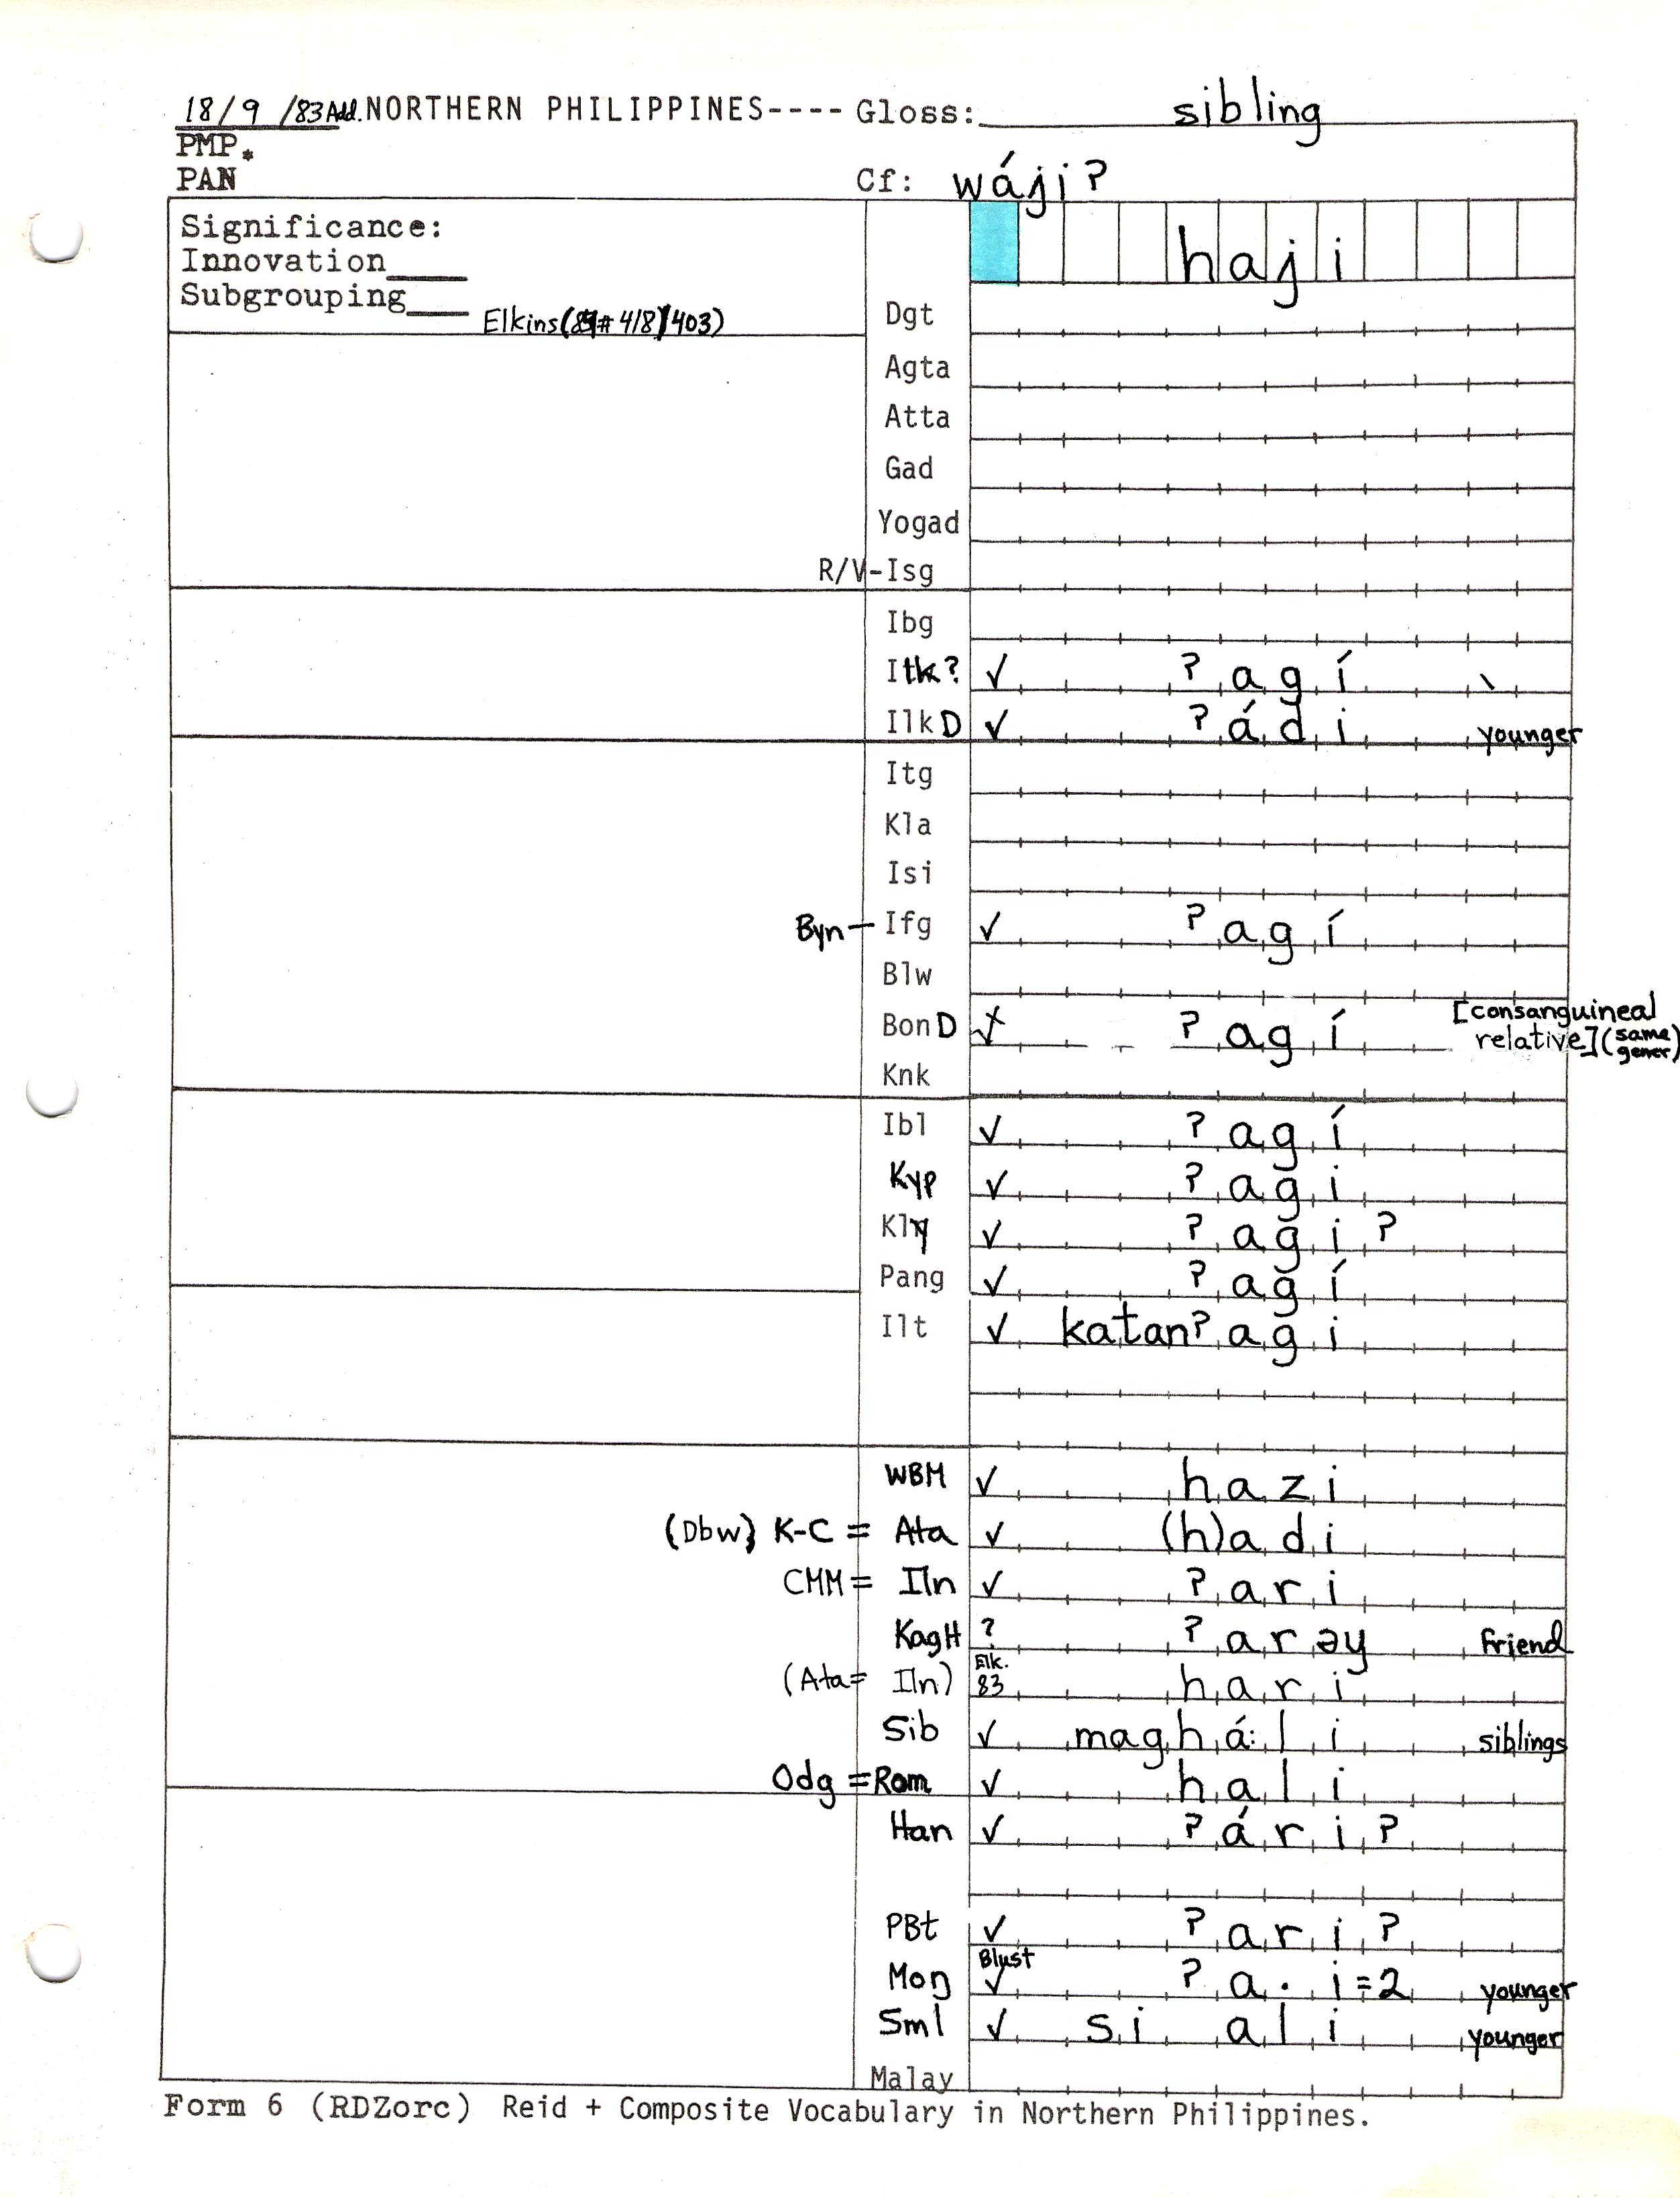 18/9/83 Add. NORTHERN PHILIPPINES---- Gloss: sibling
PMP*
PAN Cf: wáji?
Significance: haji
Innovation____
Subgrouping____ Elkins(#418/403)
Dgt
Agta
Atta
Gad
Yogad
R/V-Isg
Ibg
Itk? ✓ ?agí
Ilk D ✓ ?ádi younger
Itg
Kla
Isi
Byn — Ifg ✓ ?agí
Blw
Bon D ✓ ?agí [consanguineal relative] (same gener)
Knk
Ibl ✓ ?agí
Kyp ✓ ?agi
Kly ✓ ?agi?
Pang ✓ ?agí
Ilt ✓ katan?agi
WBM ✓ hazi
(Dbw) K-C = Ata ✓ (h)adi
CMM = Iln ✓ ?ari
KagH ? ?arəy friend
(Ata = Iln) Elk. 83 hari
Sib ✓ maghá:li siblings
Odg = Rom ✓ hali
Han ✓ ?ári?
PBt ✓ ?ari?
Moŋ Blust ✓ ?a·i=2 younger
Sml ✓ si ali younger
Malay
Form 6 (RDZorc) Reid + Composite Vocabulary in Northern Philippines.